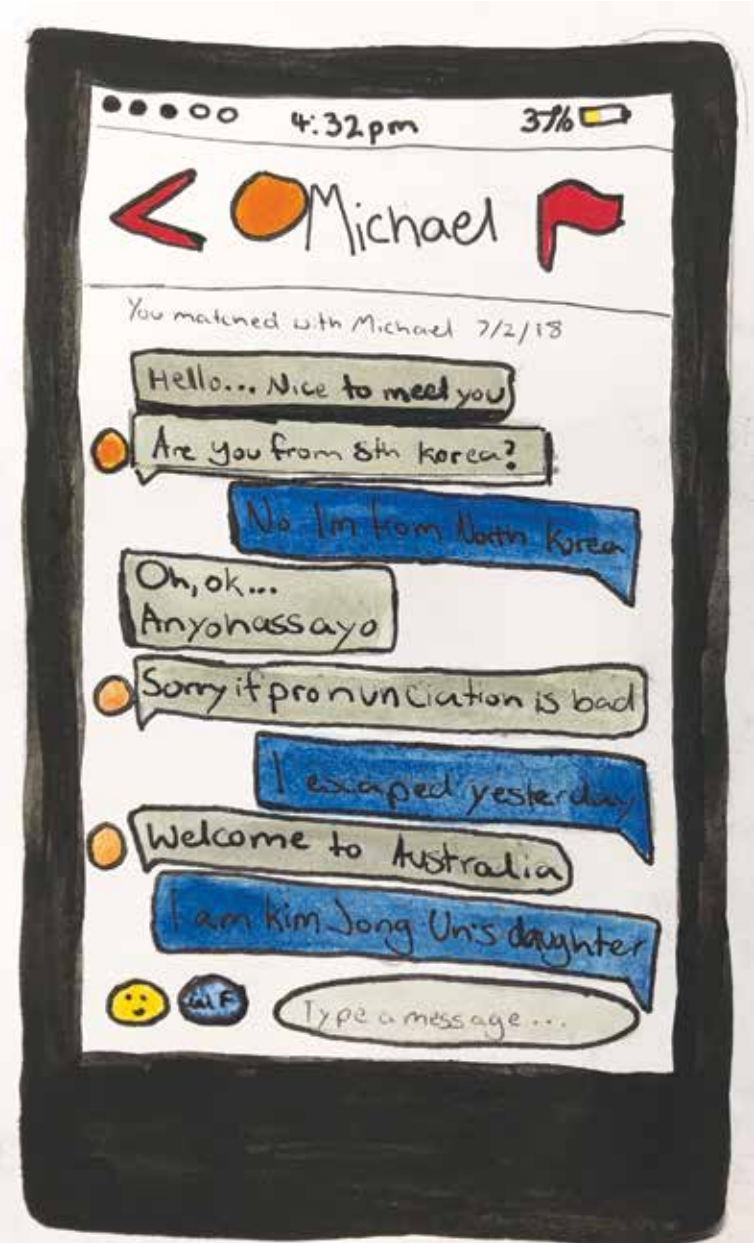 4:32pm 37%
Michael
You matched with Michael 7/2/18
Hello... Nice to meet you
Are you from Sth Korea?
No Im from North Korea
Oh, ok...
Anyohassayo
Sorry if pronunciation is bad
I escaped yesterday
Welcome to Australia
I am Kim Jong Un's daughter
GIF Type a message...